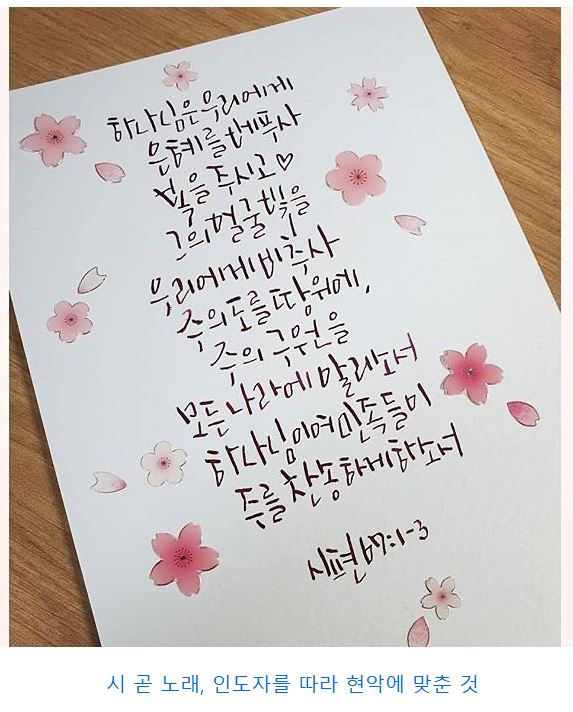 하나님은 우리에게
은혜를 베푸사
복을 주시고♡
그의 얼굴 빛을
우리에게 비추사
주의 도를 땅 위에,
주의 구원을
모든 나라에 알리소서
하나님이여 민족들이
주를 찬송하게 하소서
시편 67:1-3
시 곧 노래, 인도자를 따라 현악에 맞춘 것